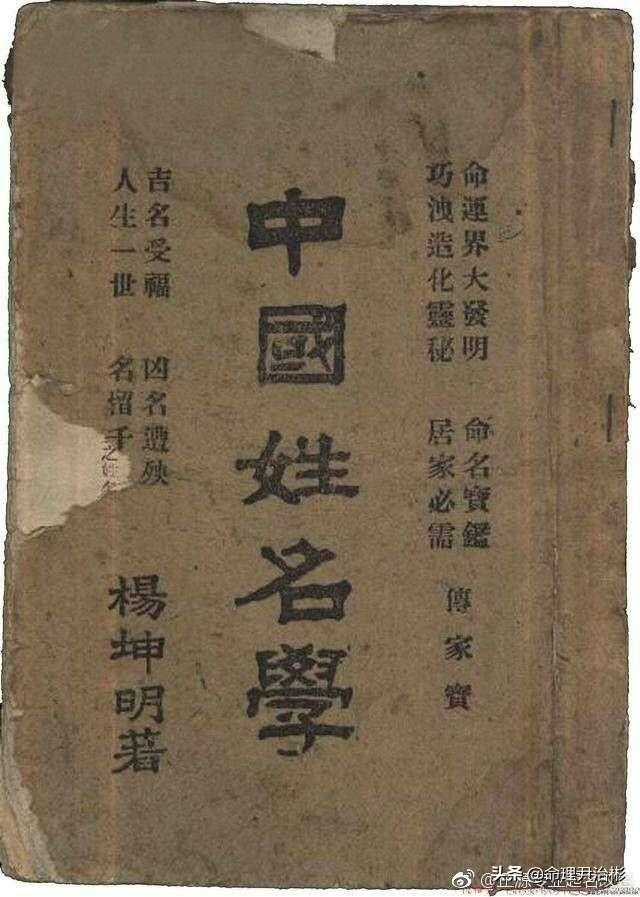 命運界大發明　命名寶鑑
巧洩造化靈秘　居家必需
傳家寶
中國姓名學
吉名受福　凶名遭殃
人生一世　名揩千
楊坤明著
头条 @命理尹治彬